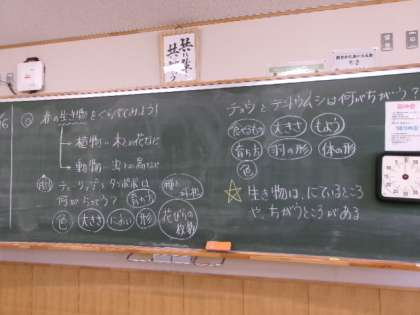 春の生き物をくらべてみよう!
植物…木や花など
動物…虫や鳥など
チューリップとタンポポは
何がちがう?
育ち方
色
大きさ
におい
形
花びらの
枚数
チョウとテントウムシは何がちがう?
食べもの
大きさ
もよう
育ち方
羽の形
体の形
色
生き物は、にているところ
や、ちがうところがある